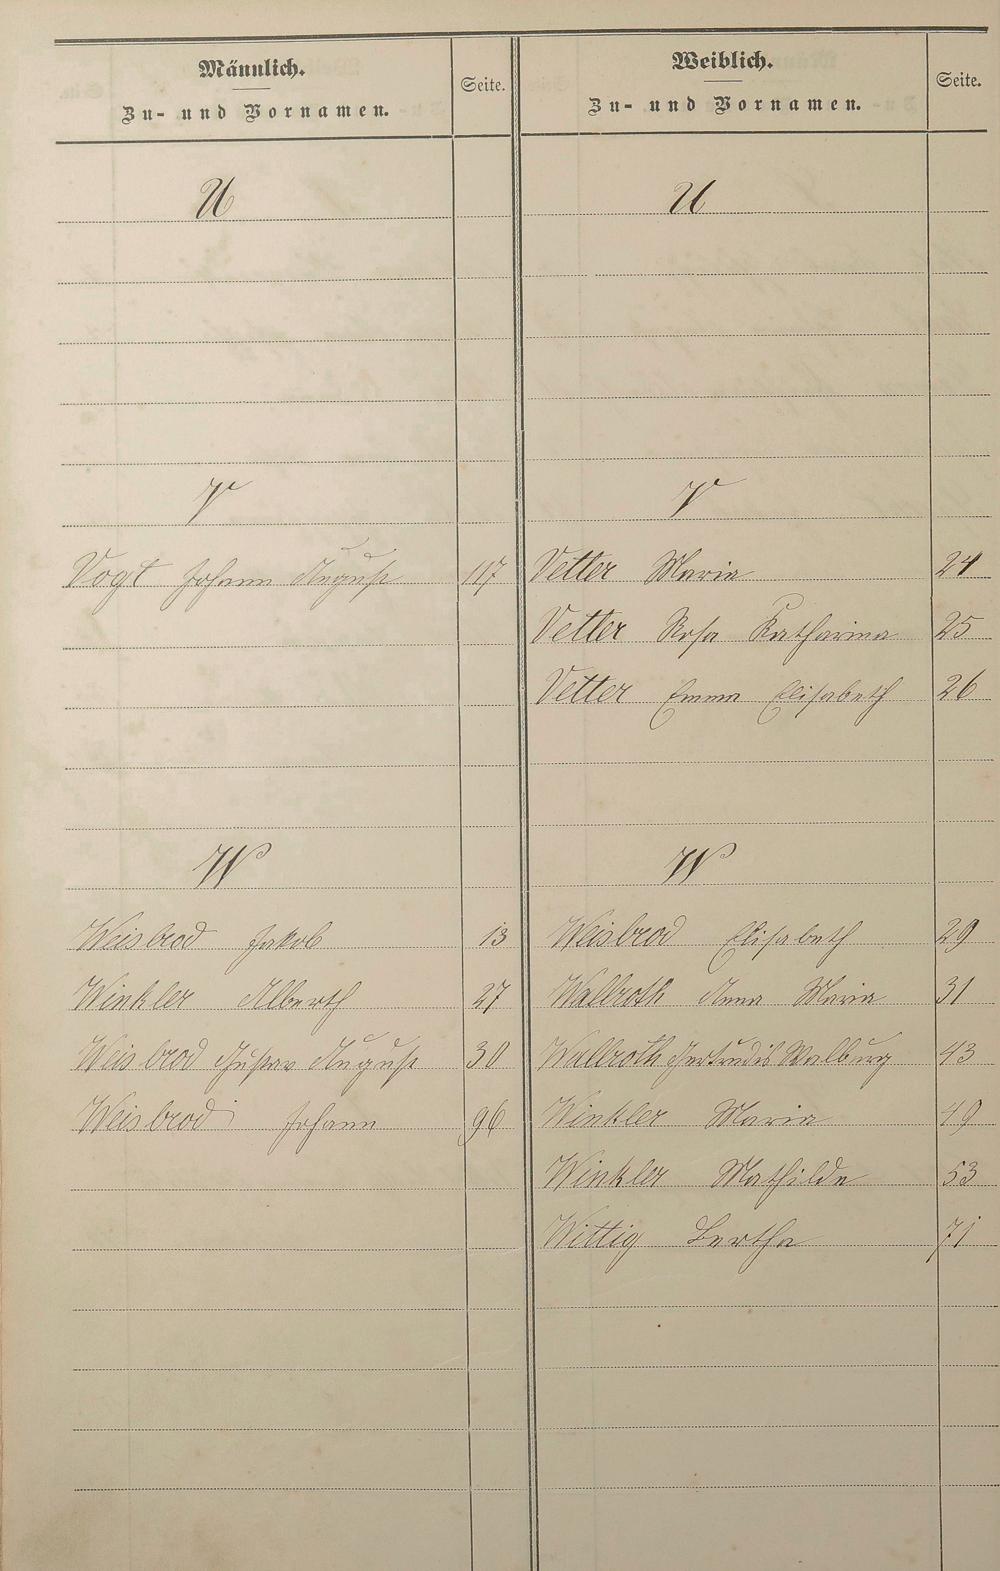 Männlich.
Zu- und Vornamen.
Seite.
U
V
Vogt Johann August 117
W
Weisbrod Jakob 13
Winkler Alberth 27
Weisbrod Gustav August 30
Weisbrod Johann 96
Weiblich.
Zu- und Vornamen.
Seite.
U
V
Vetter Maria 24
Vetter Rosa Katharina 25
Vetter Emma Elisabeth 26
W
Weisbrod Elisabeth 29
Walroth Anna Maria 31
Walroth Gertrudis Walburg 43
Winkler Maria 49
Winkler Mathilde 53
Wittig Bertha 71